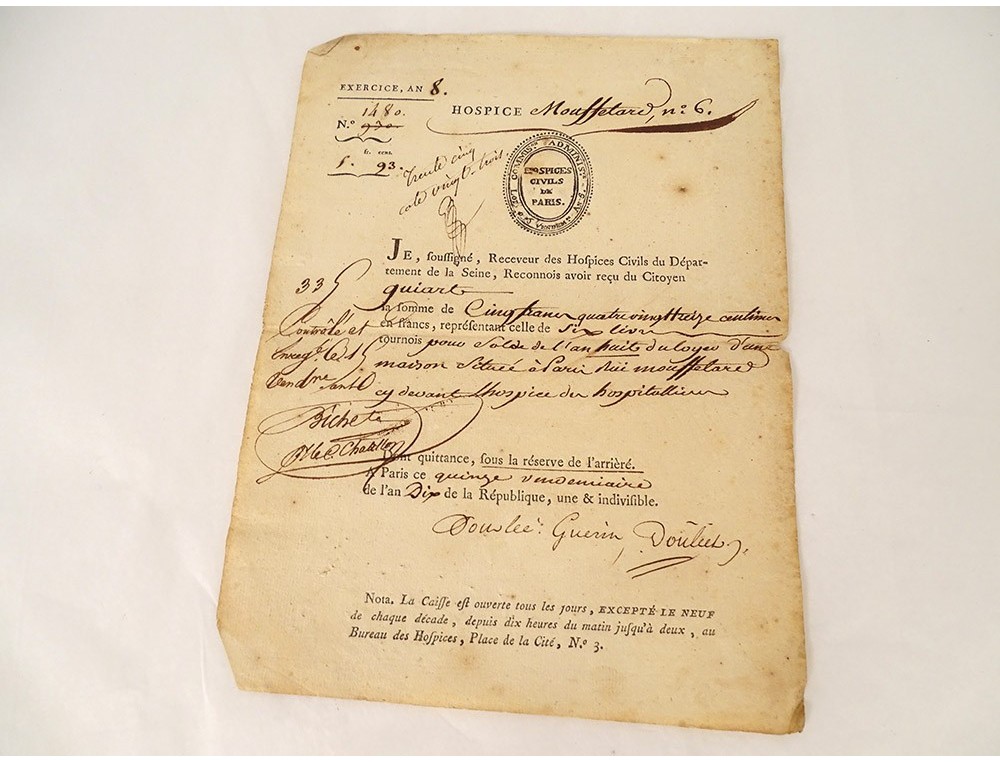 EXERCICE, AN 8.
HOSPICE Mouffetard, n.º 6.
1480.
N.º 970.
fr. cent.
5. 93.
trente cinq
cote vingt-trois.
COMMIS.ON ADMINIS.
HOSPICES
CIVILS
DE
PARIS.
VENDEM. AN 5.
JE, soussigné, Receveur des Hospices Civils du Dépar-
tement de la Seine, Reconnois avoir reçu du Citoyen
quiart
la somme de Cinq francs quatrevingttreize centimes
en francs, représentant celle de six livres
tournois pour Solde de l'an huit du loyer d'une
maison Située à Paris Rue mouffetard
cy devant l'hospice des hospitallieres
335
Contrôlé et
Enreg.é le 15
Vend.re an 10
Bichet
Chatillon
Dont quittance, sous la réserve de l'arriéré.
A Paris ce quinze vendemiaire
de l'an Dix de la République, une & indivisible.
Pour le c.n Guerin Doulcet
Nota. La Caisse est ouverte tous les jours, EXCEPTÉ LE NEUF
de chaque décade, depuis dix heures du matin jusqu'à deux, au
Bureau des Hospices, Place de la Cité, N.º 3.